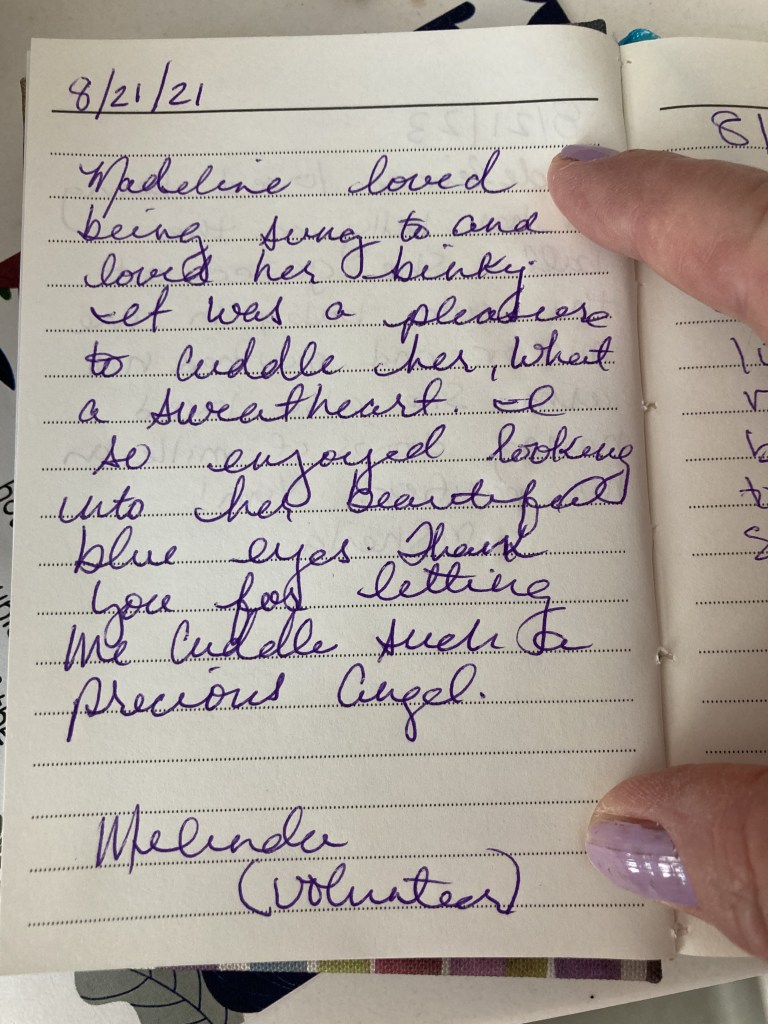 8/21/21
Madeline loved
being sung to and
loved her binky.
It was a pleasure
to cuddle her, What
a sweetheart. I
so enjoyed looking
into her beautiful
blue eyes. Thank
you for letting
me cuddle such a
precious angel.
Melinda
(Volunteer)
8/